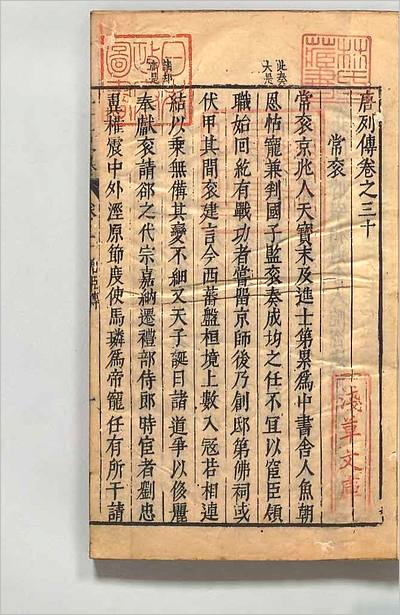 唐列傳卷之三十
常袞
常袞京兆人天寶末及進士第累爲中書舍人魚朝
恩怙寵兼判國子監袞奏成均之任不宜以宦臣領
職始回紇有戰功者嘗留京師後乃創邸第佛祠或
伏甲其間袞建言今西蕃盤桓境上數入寇若相連
結以乘無備其變不細又天子誕日諸道爭以侈麗
奉獻袞請卻之代宗嘉納遷禮部侍郎時宦者劉忠
翼權震中外涇原節度使馬璘爲帝寵任有所干請
此奏
大是
請却
亦是
淺草文庫
林氏
藏書
日本
圖書